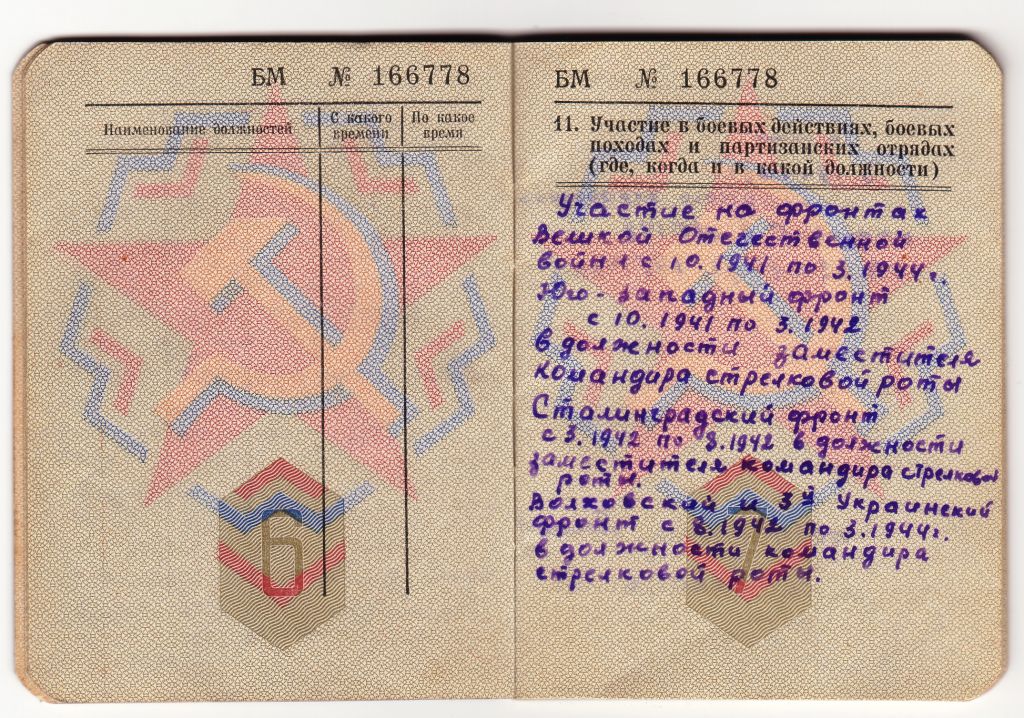 БМ № 166778
Наименование должностей
С какого времени
По какое время
6
БМ № 166778
11. Участие в боевых действиях, боевых
походах и партизанских отрядах
(где, когда и в какой должности)
Участие на фронтах
Великой Отечественной
войны с 10.1941 по 3.1944г.
Юго-западный фронт
с 10.1941 по 3.1942
в должности заместителя
командира стрелковой роты
Сталинградский фронт
с 3.1942 по 8.1942 в должности
заместителя командира стрелковой
роты.
Волховский и 3й Украинский
фронт с 8.1942 по 3.1944г.
в должности командира
стрелковой роты.
7